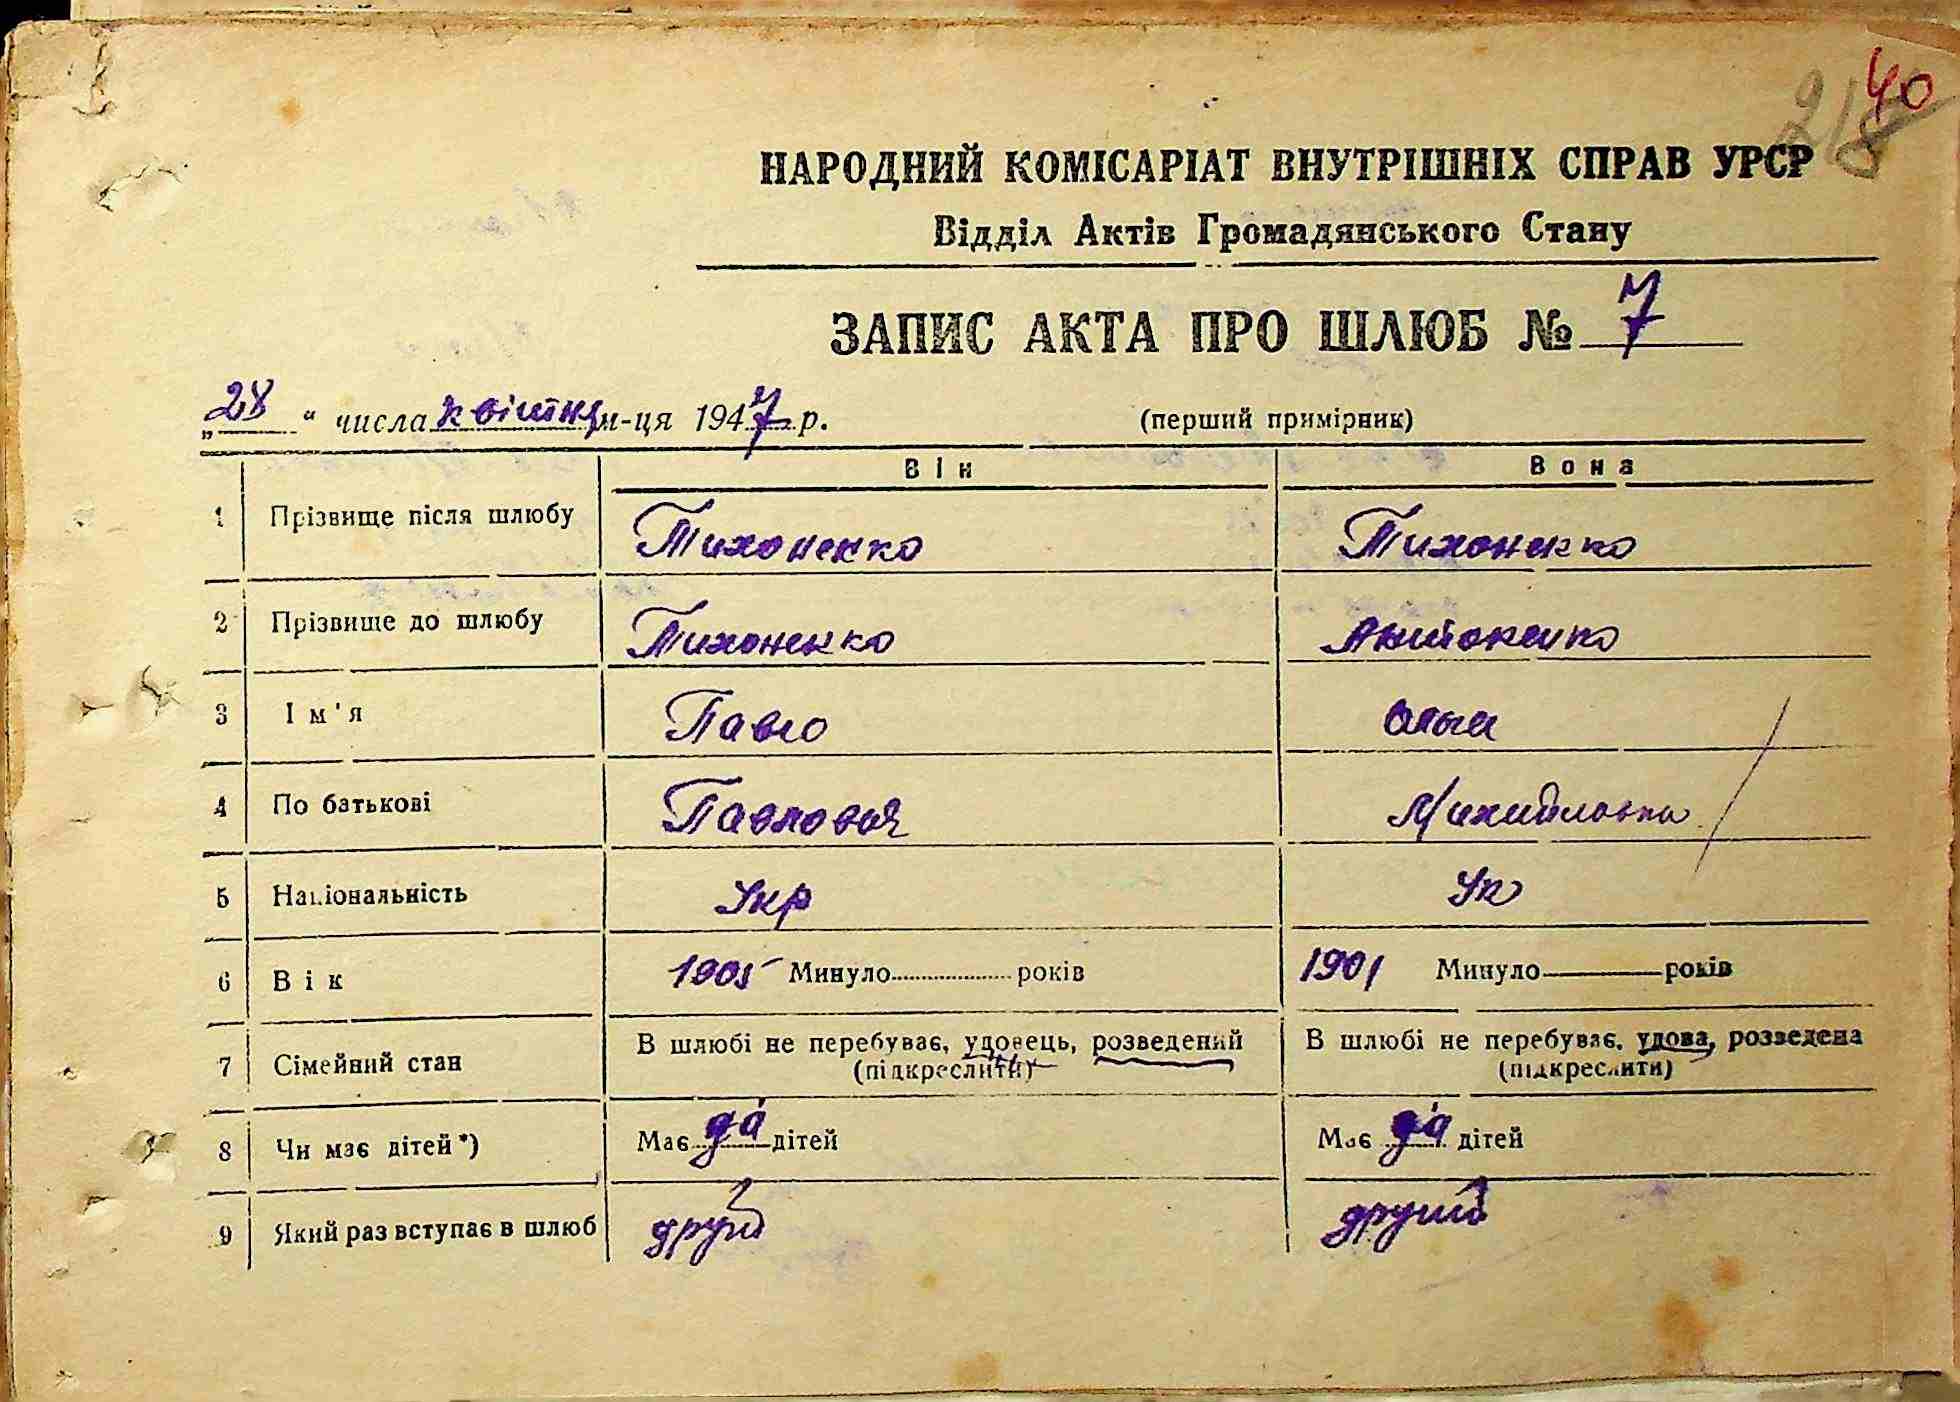 40
218
НАРОДНИЙ КОМІСАРІАТ ВНУТРІШНІХ СПРАВ УРСР
Відділ Актів Громадянського Стану
ЗАПИС АКТА ПРО ШЛЮБ № 7
„28“ числа квітня м-ця 1947 р. (перший примірник)
Він Вона
1 Прізвище після шлюбу Тихоненко Тихоненко
2 Прізвище до шлюбу Тихоненко Антоненко
3 Ім'я Павло Ольга
4 По батькові Павлович Михайловна
5 Національність Укр Ук
6 Вік 1905 Минуло років 1901 Минуло років
7 Сімейний стан В шлюбі не перебуває, удовець, розведений В шлюбі не перебуває, удова, розведена
(підкреслити) (підкреслити)
8 Чи має дітей*) Має да дітей Має да дітей
9 Який раз вступає в шлюб другий